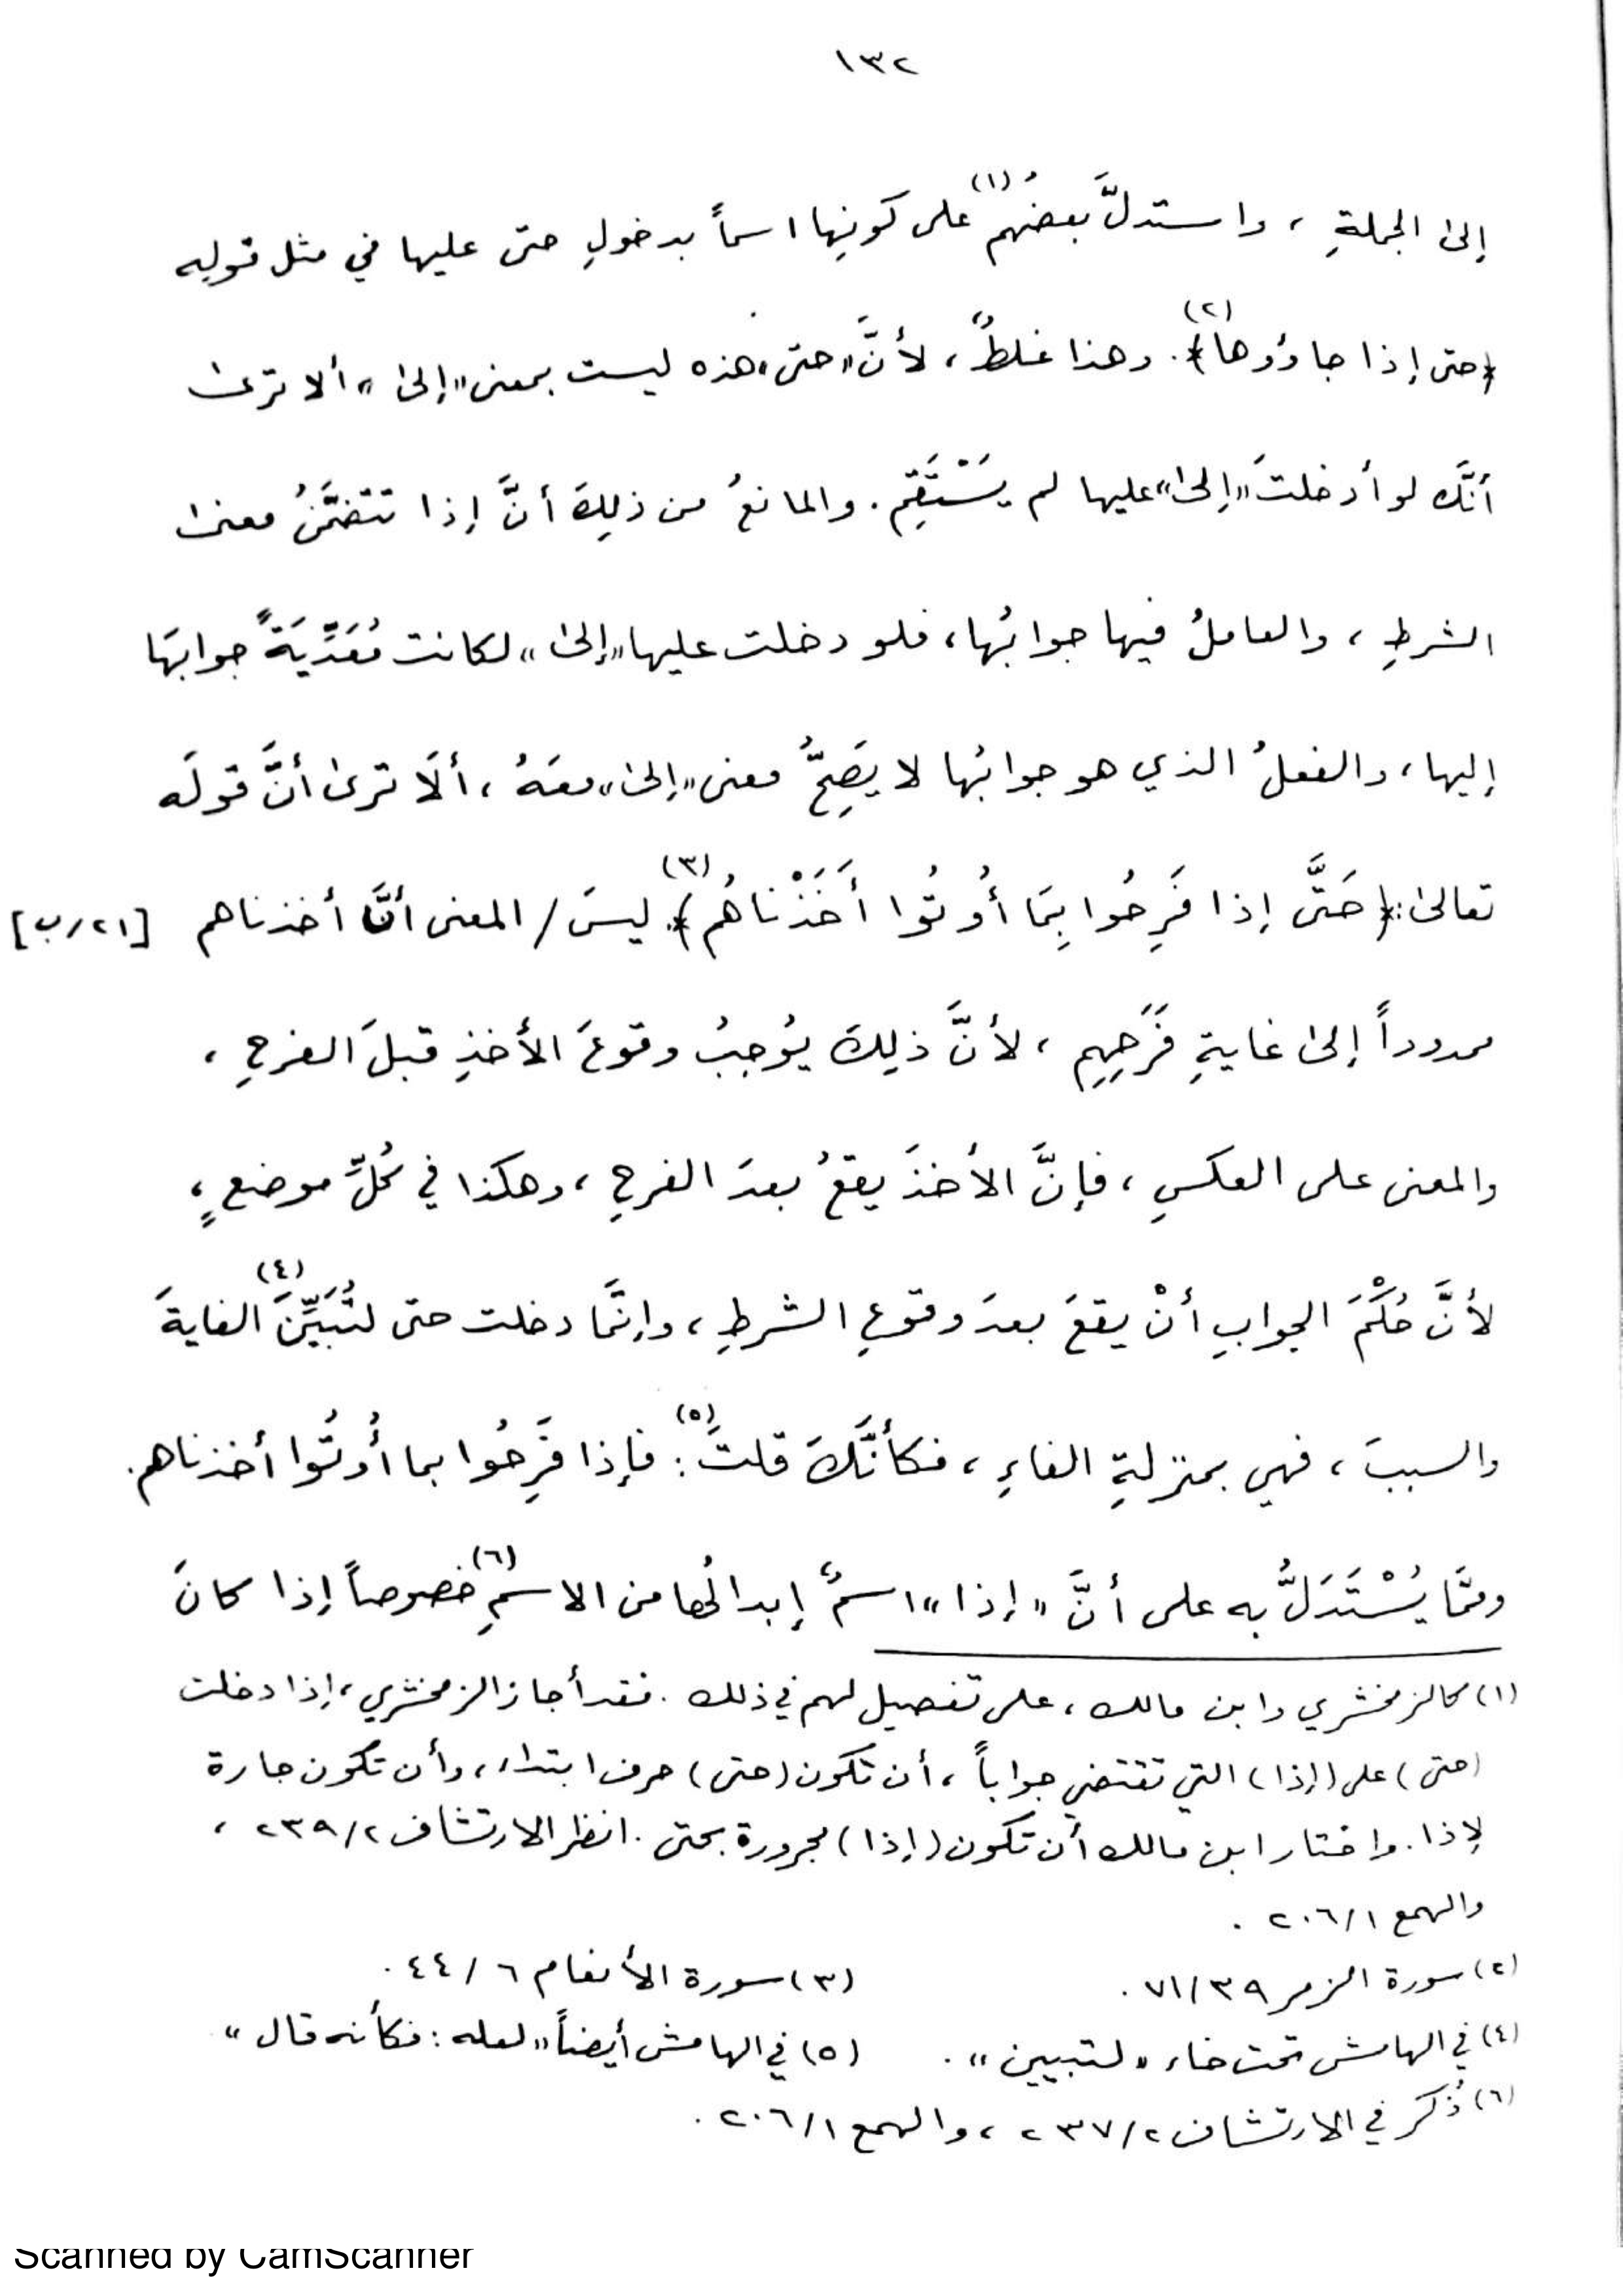 ١٣٢
إلىٰ الجملةِ ، واستدلَّ بعضُهم(١) على كونِها اسماً بدخولِ حتى عليها في مثل قولِه
﴿حتى إذا جاؤوها﴾(٢). وهذا غلطٌ ، لأنَّ «حتى» هذه ليست بمعنى «إلىٰ» ألا ترىٰ
أنَّك لو أدخلتَ «إلىٰ» عليها لم يَسْتَقِم . والمانعُ من ذلِكَ أنَّ إذا تتضمَّنُ معنىٰ
الشرطِ ، والعاملُ فيها جوابُها ، فلو دخلت عليها «إلىٰ» لكانت مُعَدِّيَةً جوابَها
إليها ، والفعلُ الذي هو جوابُها لا يَصِحُّ معنى «إلىٰ» معَهُ ، ألَا ترىٰ أنَّ قولَه
تعالىٰ : ﴿حَتَّى إذا فَرِحُوا بِمَا أُوتُوا أَخَذْناهُم﴾(٣) ليسَ / المعنى أنَّا أخذناهم [٢١/ب]
ممدوداً إلىٰ غايةِ فَرَحِهِم ، لأنَّ ذلِكَ يُوجِبُ وقوعَ الأخذِ قبلَ الفرحِ ،
والمعنى على العكسِ ، فإنَّ الأخذَ يقعُ بعدَ الفرحِ ، وهكذا في كُلِّ موضعٍ ،
لأنَّ حُكْمَ الجوابِ أنْ يقعَ بعدَ وقوعِ الشرطِ ، وإنَّما دخلت حتى لتُبَيِّنَ(٤) الغايةَ
والسببَ ، فهي بمنزلةِ الفاءِ ، فكأنَّكَ قلتَ(٥) : فإذا فَرِحُوا بما أُوتُوا أخذناهم .
وممَّا يُسْتَدَلُّ به على أنَّ «إذا» اسمٌ إبدالُها من الاسمِ(٦) خصوصاً إذا كانَ
(١) كالزمخشري وابن مالك ، على تفصيل لهم في ذلك . فقد أجاز الزمخشري ، إذا دخلت
(حتى) على (إذا) التي تقتضي جواباً ، أن تكون (حتى) حرف ابتداء ، وأن تكون جارة
لإذا . واختار ابن مالك أن تكون (إذا) مجرورة بحتى . انظر الارتشاف ٢/٢٣٩ ،
والهمع ١/٢٠٦ .
(٢) سورة الزمر ٣٩/٧١ . (٣) سورة الأنعام ٦/٤٤ .
(٤) في الهامش تحت خاء «لتبيين» . (٥) في الهامش أيضاً «لعله : فكأنه قال»
(٦) ذُكر في الارتشاف ٢/٢٣٧ ، والهمع ١/٢٠٦ .
Scanned by CamScanner